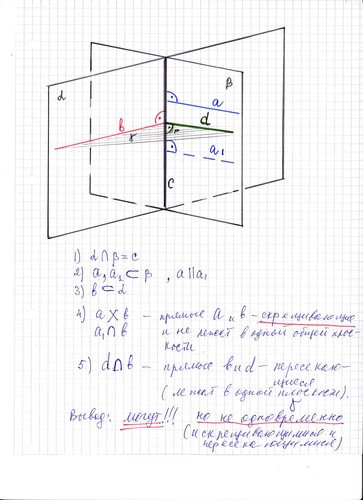 α
β
a
b
d
γ
a₁
c
1) α∩β=c
2) a, a₁ ⊂ β , a∥a₁
3) b ⊂ α
4) a X b – прямые a и b – скрещивающие
a₁∩b и не лежат в одной общей плос-
кости
5) d∩b – прямые b и d – пересекаю-
щиеся
(лежат в одной плоскости).
γ
Вывод: могут!!! но не одновременно
(и скрещивающимися и
пересекающимися)